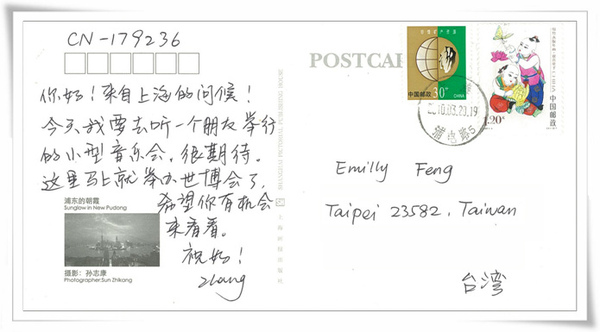 CN-179236
POSTCAR
你好！来自上海的问候！
今天我要去听一个朋友举行
的小型音乐会，很期待。
这里马上就举办世博会了，
希望你有机会
来看看。
祝好！
Zhang
浦东的朝霞
Sunglow in New Pudong
摄影：孙志康
Photographer:Sun Zhikang
30分
中国邮政
CHINA
中国邮政
120分
Emilly Feng
Taipei 23582, Taiwan
台湾